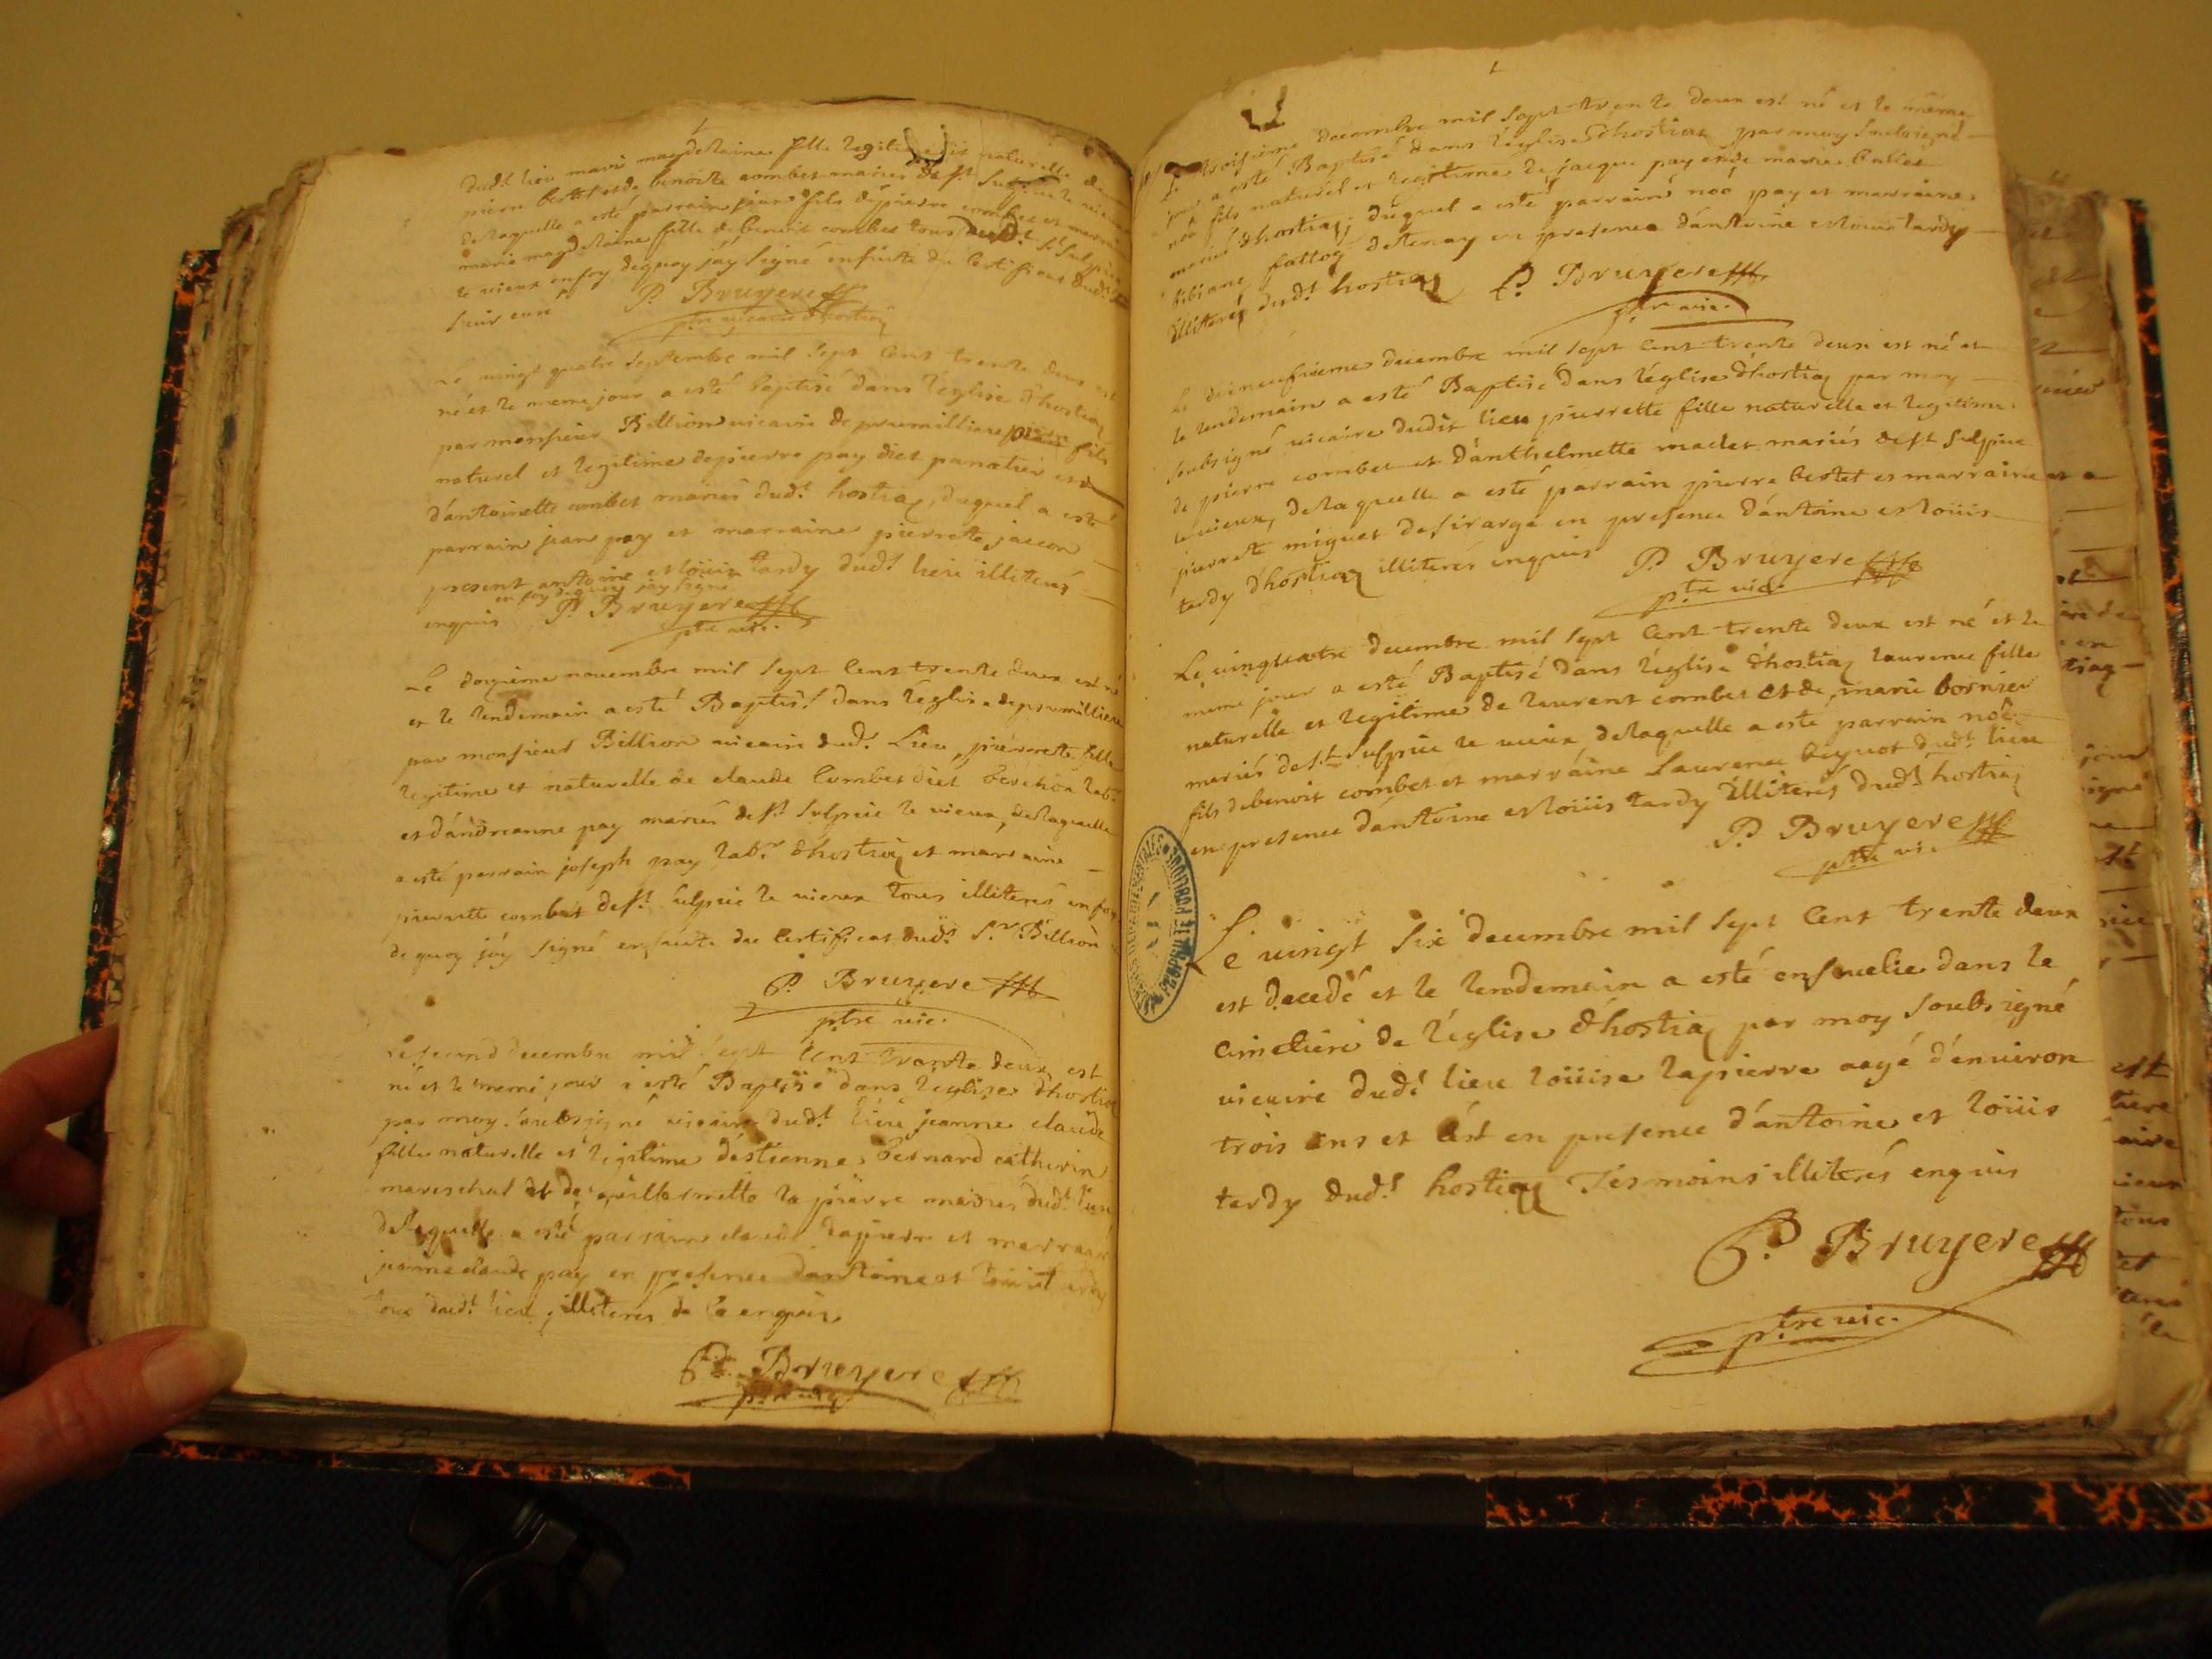 dud.t lieu marie magdelaine fille legitime et naturelle de
pierre bertet et de benoite combet mariés de s.t Sulpice le vieux
de laquelle a esté parrain jean fils de pierre combet et marraine
marie magdelaine fille de benoit combet tous dud.t s.t Sulpice
le vieux en foy dequoy j'ay signé ensuite du Certificat dud.t
sieur curé P. Bruyere
ptre vicaire d'hostiaz
Le vingt quatre septembre mil sept Cent trente deux est
né et le meme jour a esté baptisé dans l'eglise d'hostiaz
par monsieur Billion vicaire de premillieu fils
naturel et legitime de pierre pay dict panatier et
d'antoinette combet mariés dud.t hostiaz, duquel a esté
parrain jean pay et marraine pierrette jaccon
present antoine et loüis tardy dud.t lieu illiterés
en foy dequoy jay signé
enquis P. Bruyere
ptre vic.
Le douzieme novembre mil sept Cent trente deux est né
et le lendemain a esté Baptisé dans l'eglise de premillieu
par monsieur Billion vicaire dud.t Lieu, pierrette fille
legitime et naturelle de claude Combet dict lab.r
et d'andreanne pay mariés de s.t Sulpice le vieux, de laquelle
a esté parrain joseph pay lab.r d'hostiaz et marraine
pierrette combet de s.t sulpice le vieux tous illiterés en foy
de quoy j'ay signé ensuite du Certificat dud.t S.r Billion
P. Bruyere
ptre vic.
Le second decembre mil sept Cent trante deux est
né et le meme jour a esté Baptisé dans l'eglise d'hostiaz
par moy soubsigné vicaire dud.t lieu jeanne claude
fille naturelle et legitime d'estienne bernard catherin
mareschal et de guillermette lapierre mariés dud.t lieu
de laquelle a esté parrain claude lapierre et marraine
jeanne claude pay en presence d'antoine et loüis tardy
tous dud.t lieu, illiterés de ce enquis
P. Bruyere
ptre vic
Le troisieme decembre mil sept trente deux est né et le méme
jour a esté Baptisé dans l'église d'hostiaz par moy soubsigné
noé fils naturel et legitime de jacque pay et de marie ballet
mariés d'hostiaz, duquel a esté parrain noé pay et marraine
bibiane fattoz de tenay en presence d'antoine et loüis tardy
illiterés dud.t hostiaz P. Bruyere
ptre vic.
Le dixneufvieme decembre mil sept Cent trente deux est né et
le lendemain a esté Baptisé dans l'église d'hostiaz par moy
soubsigné vicaire dudit lieu pierrette fille naturelle et legitime
de pierre combet et d'anthelmette maclet mariés de s.t sulpice
le vieux, de laquelle a esté parrain pierre bertet et marraine
pierrete miguet de sirarge en presence d'antoine et loüis
tardy d'hostiaz illiterés enquis P. Bruyere
ptre vic.
Le vingquatre decembre mil sept Cent trente deux est né et le
meme jour a esté Baptisé dans l'église d'hostiaz laurence fille
naturelle et legitime de laurent combet et de marie bornier
mariés de s.t Sulpice le vieux de laquelle a esté parrain noé
fils de benoit combet et marraine Laurence beguot dud.t lieu
en presence d'antoine et loüis tardy illiterés dud.t hostiaz
P. Bruyere
ptre vic
Le vingt six decembre mil sept Cent trente deux
est decedé et le lendemain a esté ensevelie dans le
cimetiere de l'église d'hostiaz par moy soubsigné
vicaire dud.t lieu loüise lapierre aagé d'environ
trois ans et c'est en presence d'antoine et loüis
tardy dud.t hostiaz tesmoins illiterés enquis
P. Bruyere
ptre vic.